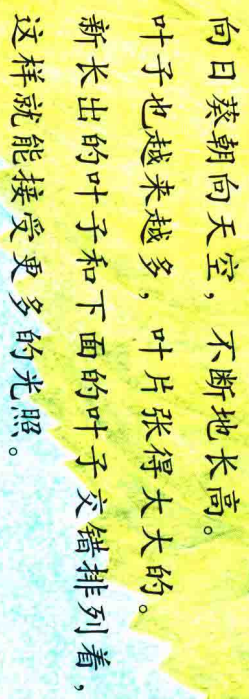 向日葵朝向天空，不断地长高。
叶子也越来越多，叶片张得大大的。
新长出的叶子和下面的叶子交错排列着，
这样就能接受更多的光照。